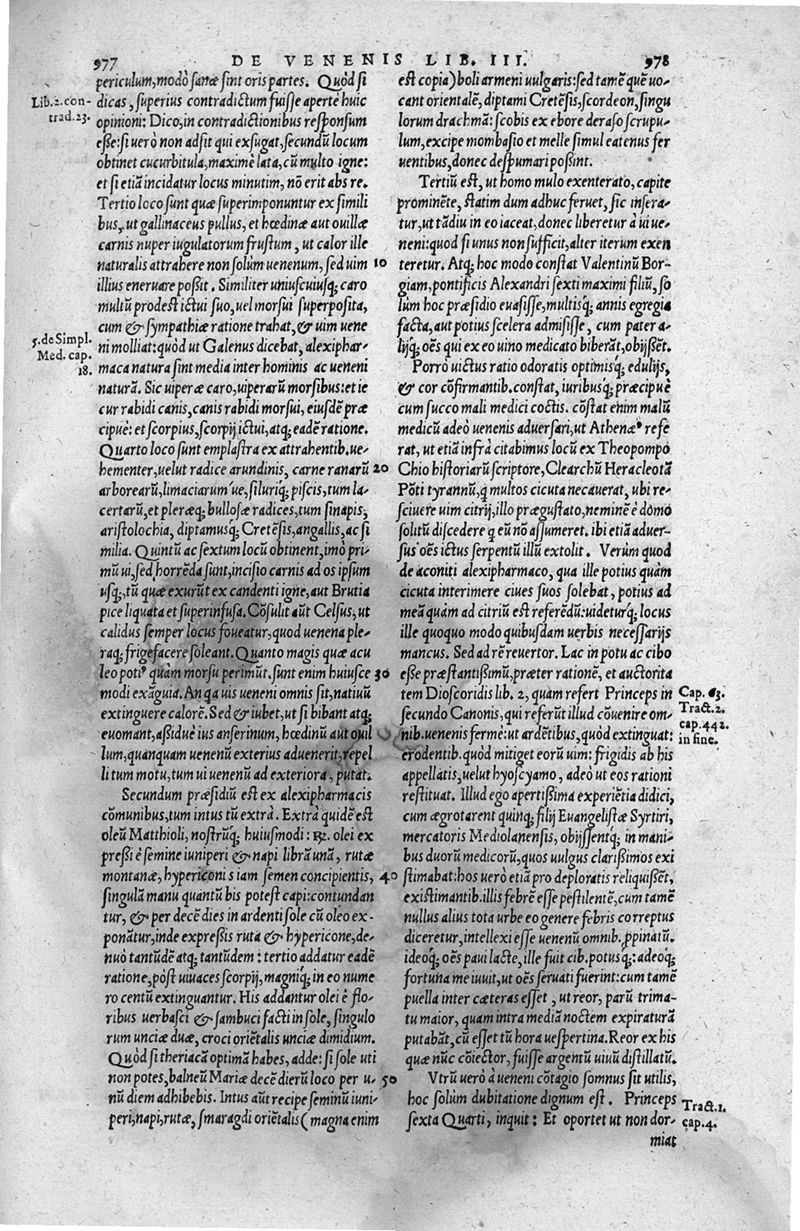 977 DE VENENIS LIB. III. 978
periculum, modò sanæ sint oris partes. Quòd si
Lib. 2. con-
trad. 23.
dicas, superius contradictum fuisse apertè huic
opinioni: Dico, in contradictionibus responsum
esse: si uerò non adsit qui exsugat, secundũ locum
obtinet cucurbitula, maximè lata, cũ multo igne:
et si etiã incidatur locus minutim, nõ erit abs re.
Tertio loco sunt quæ superimponuntur ex simili
bus, ut gallinaceus pullus, et hœdinæ aut ouillæ
carnis nuper iugulatorum frustum, ut calor ille
naturalis attrahere non solum uenenum, sed uim 10
illius eneruare possit. Similiter uniuscuiusq; caro
multũ prodest ictui suo, uel morsui superposita,
cum & sympathiæ ratione trahat, & uim uene
5. de Simpl.
Med. cap.
18.
ni molliat: quòd ut Galenus dicebat, alexiphar-
maca natura sint media inter hominis ac ueneni
naturã. Sic uiperæ caro, uiperarũ morsibus: et ie
cur rabidi canis, canis rabidi morsui, eiusdẽ præ
cipuè: et scorpius, scorpij ictui, atq; eadẽ ratione.
Quarto loco sunt emplastra ex attrahentib. ue-
hementer, uelut radice arundinis, carne ranarũ 20
arborearũ, limaciarum'ue, siluriq; piscis, tum la-
certarũ, et pleræq; bullosæ radices, tum sinapis,
aristolochia, diptamusq; Cretẽsis, angallis, ac si
milia. Quintũ ac sextum locũ obtinent, imò pri-
mũ ui, sed horrẽda sunt, incisio carnis ad os ipsum
usq;, tũ quæ exurũt ex candenti igne, aut Brutia
pice liquata et superinfusa. Cõsulit aũt Celsus, ut
calidus semper locus foueatur, quod uenena ple-
raq; frigefacere soleant. Quanto magis quæ acu
leo potiꝰ quàm morsu perimũt. sunt enim huiusce 30
modi exãguia. An qa uis ueneni omnis sit, natiuũ
extinguere calorẽ. Sed & iubet, ut si bibant atq;
euomant, assiduè ius anserinum, hœdinũ aut ouil
lum, quanquam uenenũ exterius aduenerit, repel
li tum motu, tum ui uenenũ ad exteriora, putat.
Secundum præsidiũ est ex alexipharmacis
cõmunibus, tum intus tũ extrà. Extrà quidẽ est
oleũ Matthioli, nostrũq; huiusmodi: ℞. olei ex
pressi è semine iuniperi & napi librã unã, rutæ
montanæ, hypericonis iam semen concipientis, 40
singulã manu quantũ bis potest capi: contundan
tur, & per decẽ dies in ardenti sole cũ oleo ex-
ponãtur, inde expressis ruta & hypericone, de-
nuò tantũdẽ atq; tantũdem: tertio addatur eadẽ
ratione, pòst uiuaces scorpij, magniq; in eo nume
ro centũ extinguantur. His addantur olei è flo-
ribus uerbasci & sambuci facti in sole, singulo
rum unciæ duæ, croci oriẽtalis unciæ dimidium.
Quòd si theriacã optimã habes, adde: si sole uti
non potes, balneũ Mariæ decẽ dierũ loco per u- 50
nũ diem adhibebis. Intus aũt recipe seminũ iuni-
peri, napi, rutæ, smaragdi oriẽtalis (magna enim
est copia) boli armeni uulgaris: sed tamẽ quẽ uo-
cant orientalẽ, diptami Cretẽsis, scordeon, singu
lorum drachmã: scobis ex ebore deraso scrupu-
lum, excipe mombasio et melle simul eatenus fer
uentibus, donec despumari possint.
Tertiũ est, ut homo mulo exenterato, capite
prominẽte, statim dum adhuc feruet, sic insera-
tur, ut tãdiu in eo iaceat, donec liberetur à ui ue-
neni: quòd si unus non sufficit, alter iterum exen
teretur. Atq; hoc modo constat Valentinũ Bor-
giam, pontificis Alexandri sexti maximi filiũ, so
lũm hoc præsidio euasisse, multisq; annis egregia
facta, aut potius scelera admisisse, cum pater a-
lijq; oẽs qui ex eo uino medicato biberãt, obijssẽt.
Porrò uictus ratio odoratis optimisq; edulijs,
& cor cõfirmantib. constat, iuribusq; præcipuè
cum succo mali medici coctis. cõstat enim malũ
medicũ adeò uenenis aduersari, ut Athenæꝰ refe
rat, ut etiã infrà citabimus locũ ex Theopompo
Chio historiarũ scriptore, Clearchũ Heracleotã
Põti tyrannũ, q multos cicuta necauerat, ubi re-
sciuere uim citrij, illo prægustato, neminẽ è domo
solitũ discedere q eũ nõ assumeret. ibi etiã aduer-
sus oẽs ictus serpentũ illũ extolit. Verùm quod
de aconiti alexipharmaco, qua ille potius quàm
cicuta interimere ciues suos solebat, potius ad
meã quàm ad citriũ est referẽdũ: uideturq; locus
ille quoquo modo quibusdam uerbis necessarijs
mancus. Sed ad rẽ reuertor. Lac in potu ac cibo
esse præstantissimũ, præter rationẽ, et auctorita
Cap. 63.
Tract. 2.
cap. 442.
in fine.
tem Dioscoridis lib. 2, quam refert Princeps in
secundo Canonis, qui referũt illud cõuenire om-
nib. uenenis fermè: ut ardẽtibus, quòd extinguat:
erodentib. quòd mitiget eorũ uim: frigidis ab his
appellatis, uelut hyoscyamo, adeò ut eos rationi
restituat. Illud ego apertissima experiẽtia didici,
cum ægrotarent quinq; filij Euangelistæ Syrtiri,
mercatoris Mediolanensis, obijssentq; in mani-
bus duorũ medicorũ, quos uulgus clarissimos exi
stimabat: hos uerò etiã pro deploratis reliquissẽt,
existimantib. illis febrẽ esse pestilentẽ, cum tamẽ
nullus alius tota urbe eo genere febris correptus
diceretur, intellexi esse uenenũ omnib. ꝓpinatũ.
ideoq; oẽs paui lacte, ille fuit cib. potusq;: adeoq;
fortuna me iuuit, ut oẽs seruati fuerint: cum tamẽ
puella inter cæteras esset, ut reor, parũ trima-
tu maior, quam intra mediã noctem expiraturã
putabãt, cũ esset tũ hora uespertina. Reor ex his
quæ nũc cõiector, fuisse argentũ uiuũ distillatũ.
Vtrũ uerò à ueneni cõtagio somnus sit utilis,
hoc solum dubitatione dignum est. Princeps
Tract. 1.
cap. 4.
sexta Quarti, inquit: Et oportet ut non dor-
miat